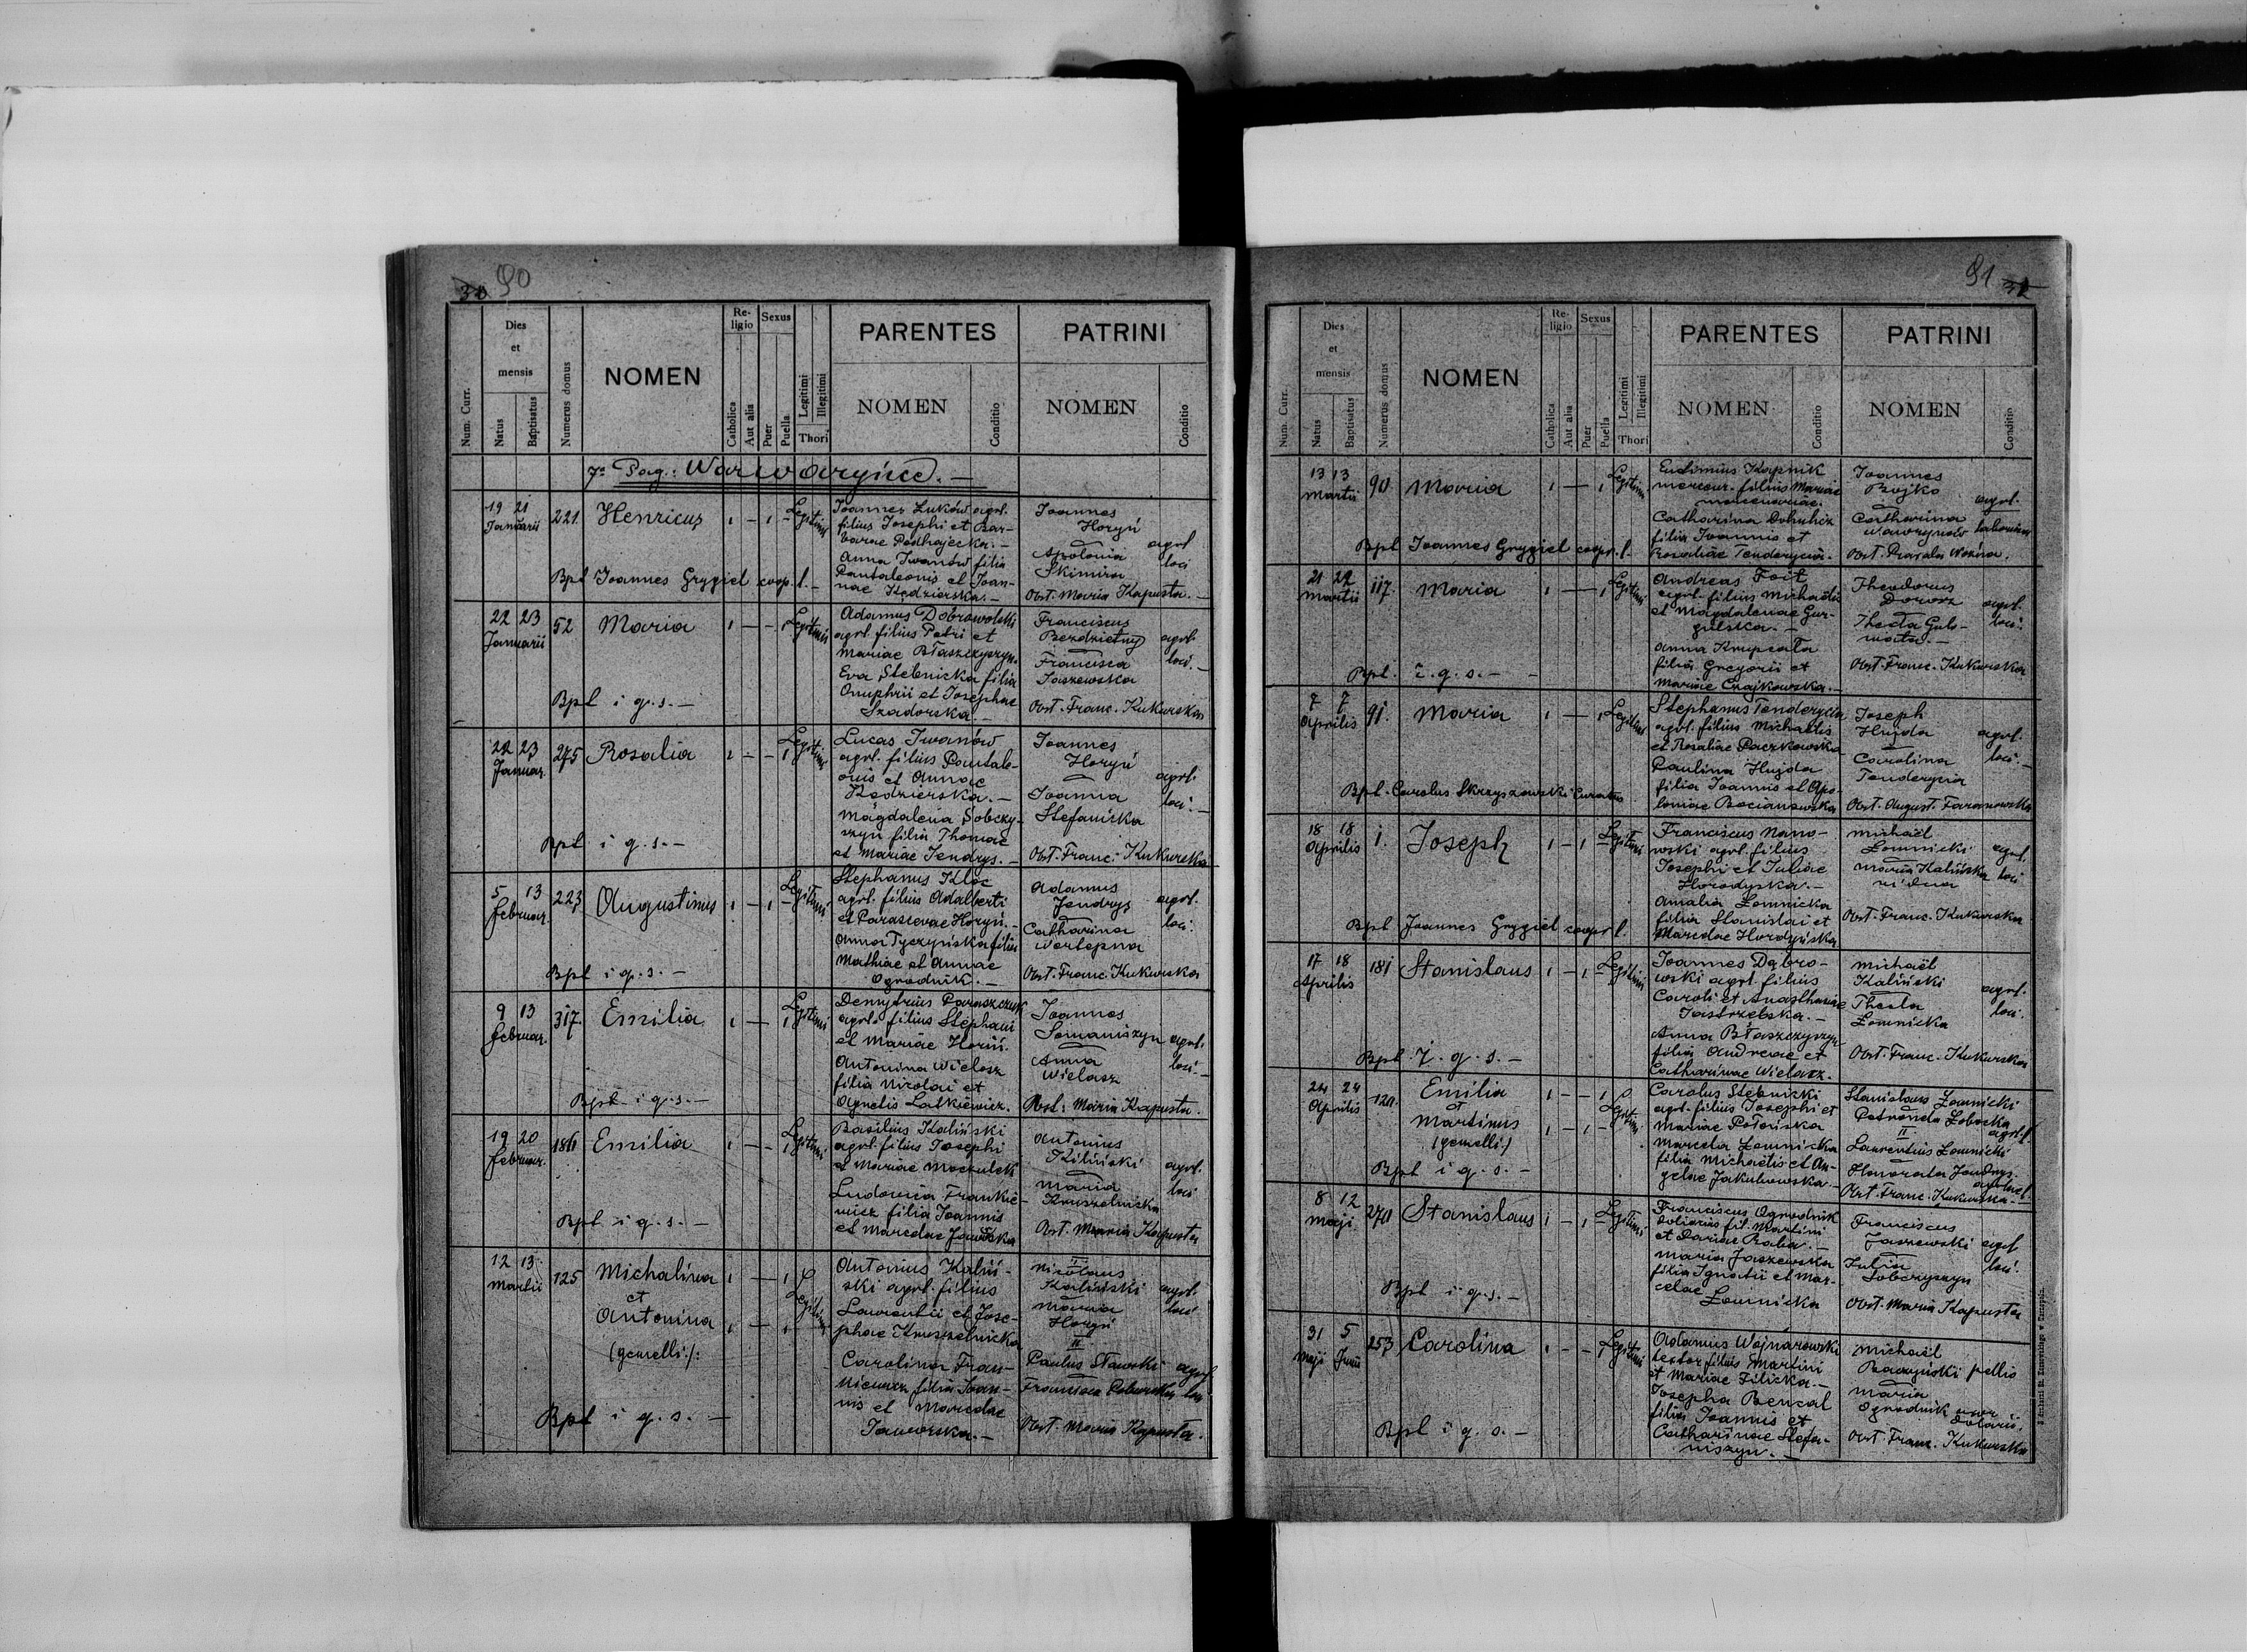 90
Dies et mensis
Re-ligio
Sexus
PARENTES
PATRINI
Num. Curr.
Natus
Baptisatus
Numerus domus
NOMEN
Catholica
Aut alia
Puer
Puella
Legitimi
Illegitimi
Thori
NOMEN
Conditio
NOMEN
Conditio
7º Pag.: Warwaryńce. —
19 21
Januarii
221.
Henricus
1 — 1 —
Legitimi
Joannes Łuków agrl.
filius Josephi et Bar-
barae Podhajecka. —
Anna Iwanów filia
Pantaleonis et Joan-
nae Kędzierska. —
Joannes
Horyń
Apolonia
Skimira
agrl
loci
Obst. Maria Kapusta. —
Bpt Joannes Grygiel coop. l. —
22 23
Januarii
52
Maria
1 — — 1
Legitimi
Adamus Dobrowolski
agrl. filius Petri et
Mariae Błaszczyszyn.
Eva Stebnicka filia
Onuphrii et Josephae
Szadorska. —
Franciscus
Bezdzietny
Francisca
Jaszewska
agrl.
loci. —
Obst. Franc. Kukurska
Bpt i g. s. —
22 23
Januar.
275
Rosalia
1 — — 1
Legitimi
Lucas Iwanów
agrl. filius Pantale-
onis et Annae
Kędzierska. —
Magdalena Sobczy-
szyn filia Thomae
et Mariae Jendrys. —
Joannes
Horyń
Joanna
Stefanicka
agrl.
loci. —
Obst. Franc. Kukurska
Bpt i g. s. —
5 13
Februar.
223
Augustinus
1 — 1 —
Legitimi
Stephanus Kloc
agrl. filius Adalberti
et Parascevae Horyń. —
Anna Tyczyńska filia
Mathiae et Annae
Ogrodnik. —
Adamus
Jendrys
Catharina
Wertepna
agrl.
loci.
Obst. Franc. Kukurska
Bpt i g. s. —
9 13
Februar.
317.
Emilia
1 — 1
Legitimi
Demytrius Paraszczuk
agrl. filius Stephani
et Mariae Horiń.
Antonina Wielosz
filia Nicolai et
Agnetis Latkiewicz.
Joannes
Romaniszyn
Anna
Wielosz
agrl.
loci. —
Obst. Maria Kapusta.
Bpt i g. s. —
19 20
Februar.
186
Emilia
1 — — 1
Legitimi
Basilius Kaliński
agrl. filius Josephi
et Mariae Moczulek
Ludovica Frankie-
wicz filia Joannis
et Marcelae Jaworska
Antonius
Kiliński
Maria
Kruszelnicka
agrl.
loci
Obst. Maria Kapusta
Bpt i g. s. —
12 13
Martii
125
Michalina
et
Antonina
(gemelli):
1 — 1
1 — 1
Legitimi
Antonius Kaliń-
ski agrl. filius
Laurentii et Jose-
phae Kruszelnicka
Carolina Fran-
kiewicz filia Joan-
nis et Marcelae
Jaworska. —
I
Nicolaus
Kaliński
Maria
Horyń
agrl.
loci
II
Paulus Stawski agrl
Francisca loci
Obst. Maria Kapusta.
Bpt i g. s. —
91
Dies et mensis
Re-ligio
Sexus
PARENTES
PATRINI
Num. Curr.
Natus
Baptisatus
Numerus domus
NOMEN
Catholica
Aut alia
Puer
Puella
Legitimi
Illegitimi
Thori
NOMEN
Conditio
NOMEN
Conditio
13 13
Martii
90
Maria
1 — 1
Legitimi
Eutimius Kapnik
mercen. filius Mariae
mercenariae.
Catharina
filia Joannis et
Rosaliae Tenderycia. —
Joannes
Bojko
Catharina
Wawrynów
agrl.
Obst. Woźna.
Bpt Joannes Grygiel coop. l. —
21 22
Martii
117.
Maria
1 — 1
Legitimi
Andreas Foit
agrl. filius Michaelis
et Magdalenae Gur-
gulska. —
Anna Krupcała
filia Gregorii et
Mariae Czajkowska. —
Theodorus
Dorosz
Thecla Gula-
mata. —
agrl.
loci.
Obst. Franc. Kukurska
Bpt. i. g. s. —
7 7
Aprilis
91.
Maria
1 — 1
Legitimi
Stephanus Tenderycia
agrl. filius Michaelis
et Rosaliae Paczkowska
Paulina Hujda
filia Joannis et Apo-
loniae Bocianowska
Joseph
Hujda
Carolina
Tenderycia
agrl.
loci. —
Obst. August. Taranowska
Bpt. Carolus Skrzyszowski Curatus
18 18
Aprilis
1.
Joseph
1 — 1
Legitimi
Franciscus Nano-
wski agrl. filius
Josephi et Juliae
Horodyska. —
Amalia Łomnicka
filia Stanislai et
Marcelae Hordyńska
Michaël
Łomnicki
Maria Kalińska
vidua
agrl.
loci
Obst. Franc. Kukurska
Bpt Joannes Grygiel coop. l.
17 18
Aprilis
181
Stanislaus
1 — 1 —
Legitimi
Joannes Dąbro-
wski agrl. filius
Caroli et Anasthasiae
Jastrzebska. —
Anna Błaszczyszyn
filia Andreae et
Catharinae Wielosz.
Michaël
Kaliński
Thecla
Łomnicka
agrl.
loci.
Obst. Franc. Kukurska
Bpt i. g. s. —
24 24
Aprilis
120.
Emilia
et
Martinus
(gemelli)
1 — 1
1 — 1 —
Legitimi
Carolus Stebnicki
agrl. filius Josephi et
Mariae Potońska
Marcela Łomnicka
filia Michaëlis et An-
gelae Jakubowska. —
Stanislaus Łomnicki
Petronela Łobocka
agrl. l.
II
Laurentius Łomnicki
Honorata Jendrys.
Obst. Franc. Kukurska. —
Bpt i g. s. —
8 12
Maji
270
Stanislaus
1 — 1
Legitimi
Franciscus Ogrodnik
doliarius fil. Martini
et Dariae Raba. —
Maria Jaszewska
filia Ignatii et Mar-
celae Łomnicka
Franciscus
Jaszewski
Julia
Sobczyszyn
agrl
loci.
Obst. Maria Kapusta
Bpt i g. s. —
31 5
Maji Junii
253
Carolina
1 — —
Legitimi
Adamus Wojnarowski
textor filius Martini
et Mariae Filicka. —
Josepha Bencal
filia Joannis et
Catharinae Stefa-
niszyn. —
Michaël
Baczyński pellio
Maria
Ogrodnik uxor
doliarii.
Obst. Franc. Kukurska
Bpt i g. s. —